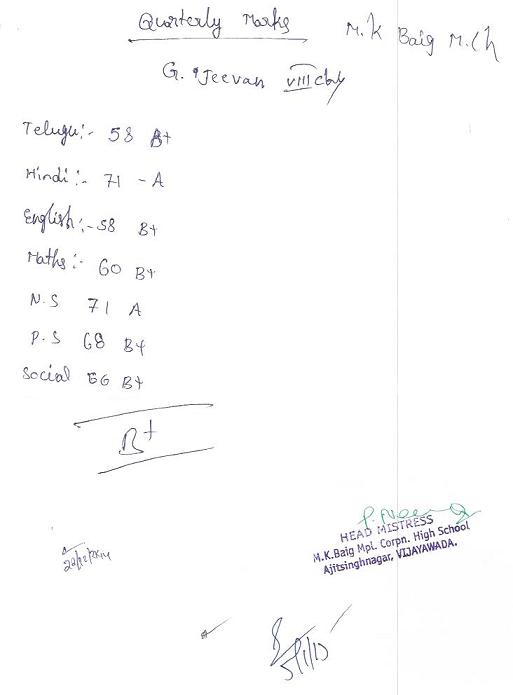 Quarterly Marks
M.K Baig M.Ch
G. Jeevan VIII
Telugu:- 58 B+
Hindi:- 71 - A
English:- 58 B+
Maths:- 60 B+
N.S 71 A
P.S 68 B+
Social 66 B+
B+
HEAD MISTRESS
M.K.Baig Mpl. Corpn. High School
Ajitsinghnagar, VIJAYAWADA.
22/12/2014
5/1/15